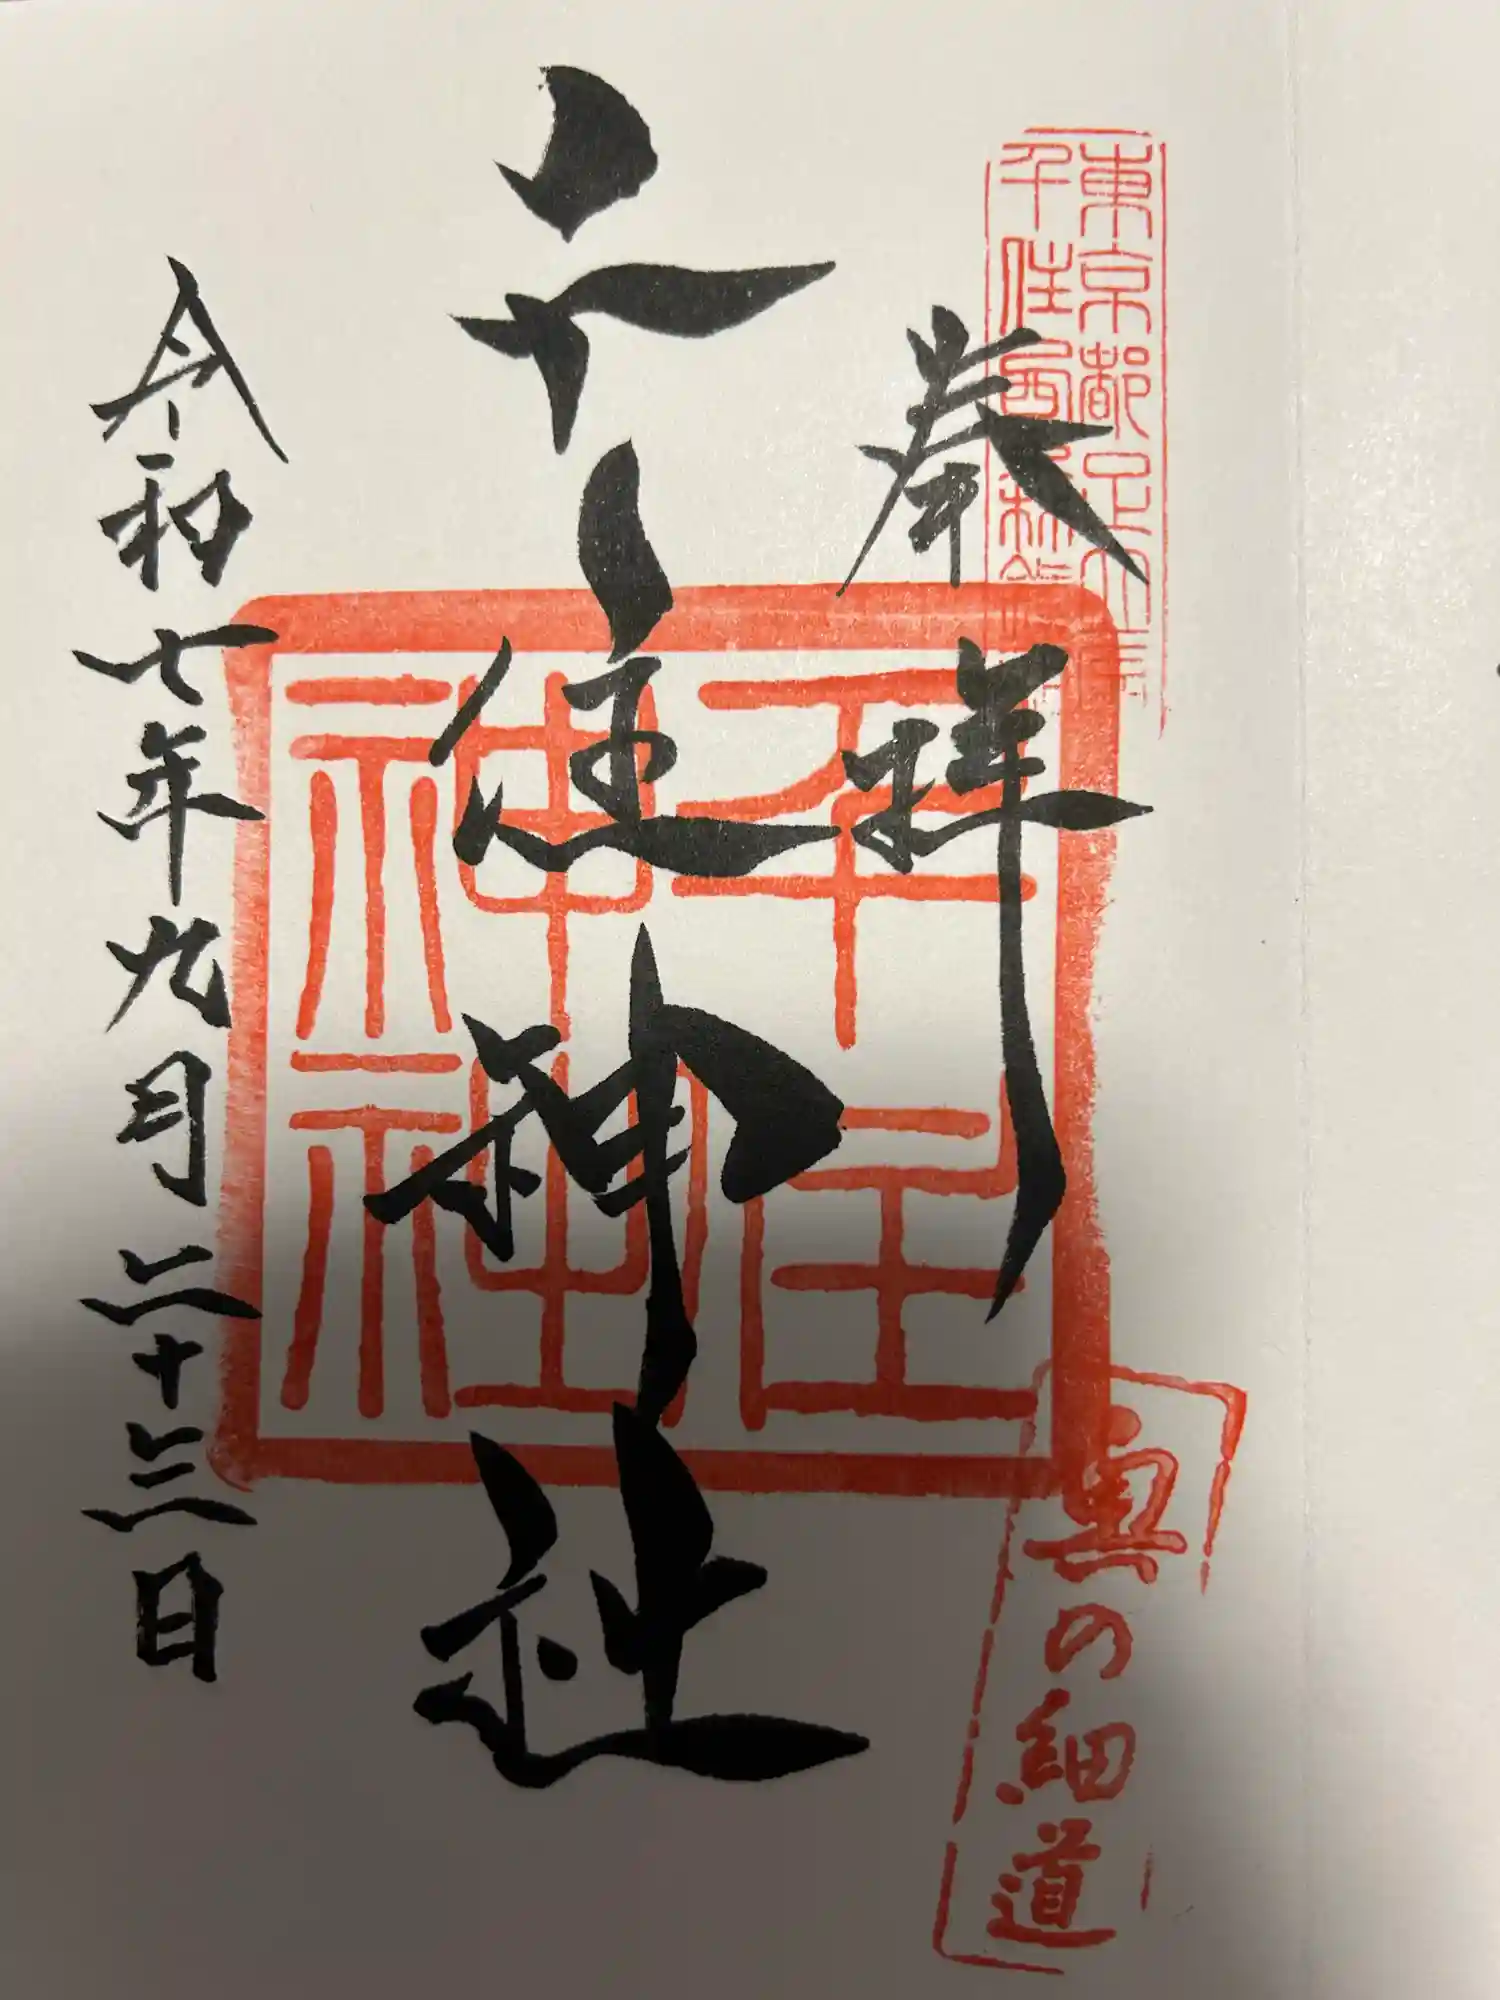 東京都足立区
千住西森鎮
奉拝
千住神社
千住
神社
奥の細道
令和七年九月二十三日